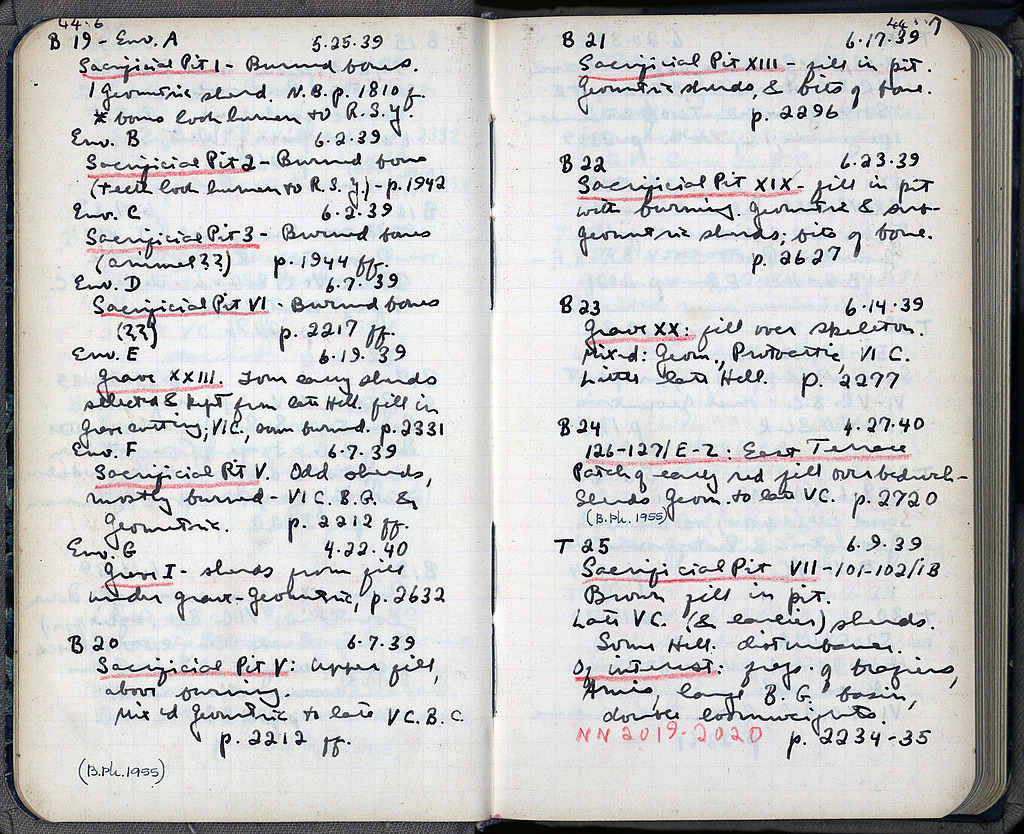 44.6
B 19 - Env. A 5.25.39
Sacrificial Pit 1 - Burned bones.
1 Geometric sherd. N.B. p. 1810 f.
* bones look human to R.S.Y.
Env. B 6.2.39
Sacrificial Pit 2 - Burned bone
(teeth look human to R.S.Y.) - p. 1942
Env. C 6.2.39
Sacrificial Pit 3 - Burned bones
(animal??) p. 1944 ff.
Env. D 6.7.39
Sacrificial Pit VI - Burned bones
(??) p. 2217 ff.
Env. E 6.19.39
Grave XXIII. Some early sherds
selected & kept from late Hell. fill in
grave cutting; VI C., some burned. p. 2331
Env. F 6.7.39
Sacrificial Pit V. Odd sherds,
mostly burned - VI C. B.G. &
Geometric. p. 2212 ff.
Env. G 4.22.40
Grave I - sherds from fill
under grave - Geometric, p. 2632
B 20 6.7.39
Sacrificial Pit V: Upper fill,
above burning.
Mix'd Geometric to late V C. B.C.
p. 2212 ff.
(B.Ph. 1955)
44.7
B 21 6.17.39
Sacrificial Pit XIII - fill in pit.
Geometric sherds, & bits of bone.
p. 2296
B 22 6.23.39
Sacrificial Pit XIX - fill in pit
with burning. Geometric & sub-
geometric sherds; bits of bone.
p. 2627
B 23 6.14.39
Grave XX: fill over skeleton.
Mix'd: Geom., Protoattic, VI C.
Little late Hell. p. 2277
B 24 4.27.40
126-127/E-Z: East Terrace
Patch of early red fill over bedrock -
Sherds Geom. to late V C. p. 2720
(B.Ph. 1955)
T 25 6.9.39
Sacrificial Pit VII - 101-102/IB
Brown fill in pit.
Late V C. (& earlier) sherds.
Some Hell. disturbance.
Of interest: frags. of braziers,
large B.G. basin,
double loomweights.
NN 2019-2020 p. 2234-35